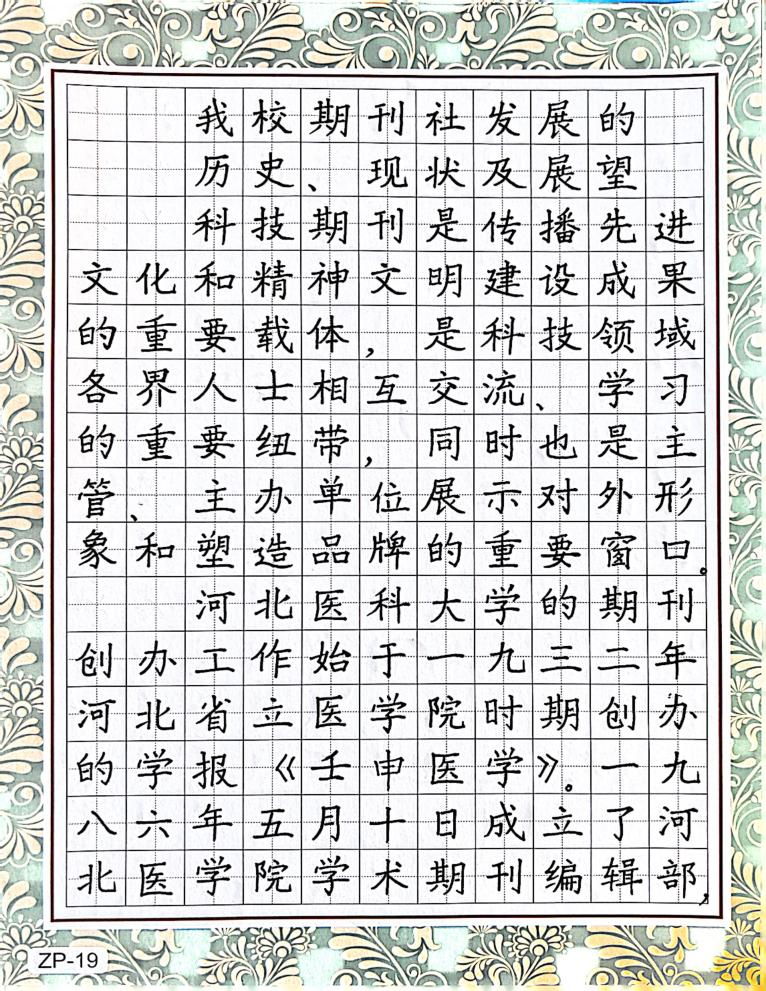 我校期刊社发展的
历史、现状及展望
科技期刊是传播先进
文化和精神文明建设成果
的重要载体，是科技领域
各界人士相互交流、学习
的重要纽带，同时也是主
管、主办单位展示对外形
象和塑造品牌的重要窗口。
河北医科大学的期刊
创办工作始于一九三二年
河北省立医学院时期创办
的学报《壬申医学》。一九
八六年五月十日成立了河
北医学院学术期刊编辑部，
ZP-19